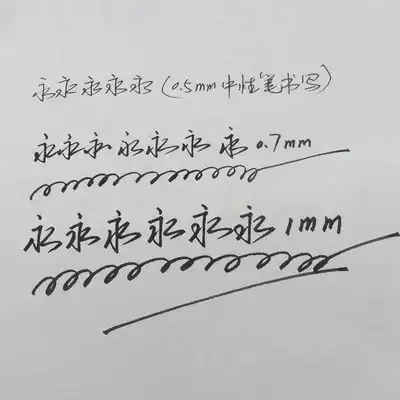 永永永永永(0.5mm中性笔书写)
永永永永永永永0.7mm
永永永永永永1mm